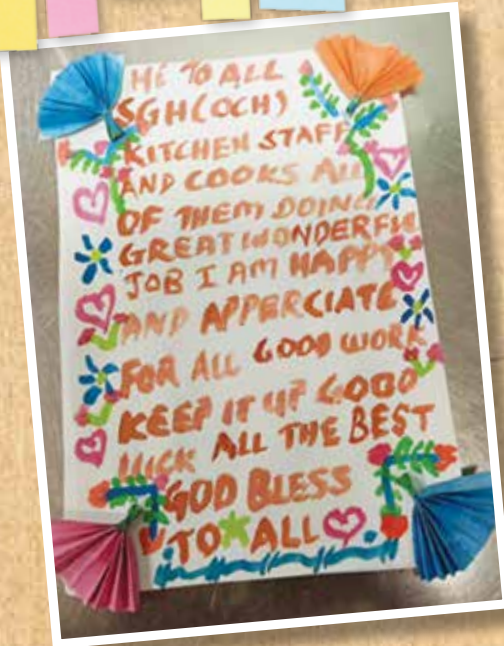 HE TO ALL
SGH(OCH)
KITCHEN STAFF
AND COOKS ALL
OF THEM DOING
GREAT WONDERFUL
JOB I AM HAPPY
AND APPERCIATE
FOR ALL GOOD WORK
KEEP IT UP GOOD
LUCK ALL THE BEST
GOD BLESS
TO ALL